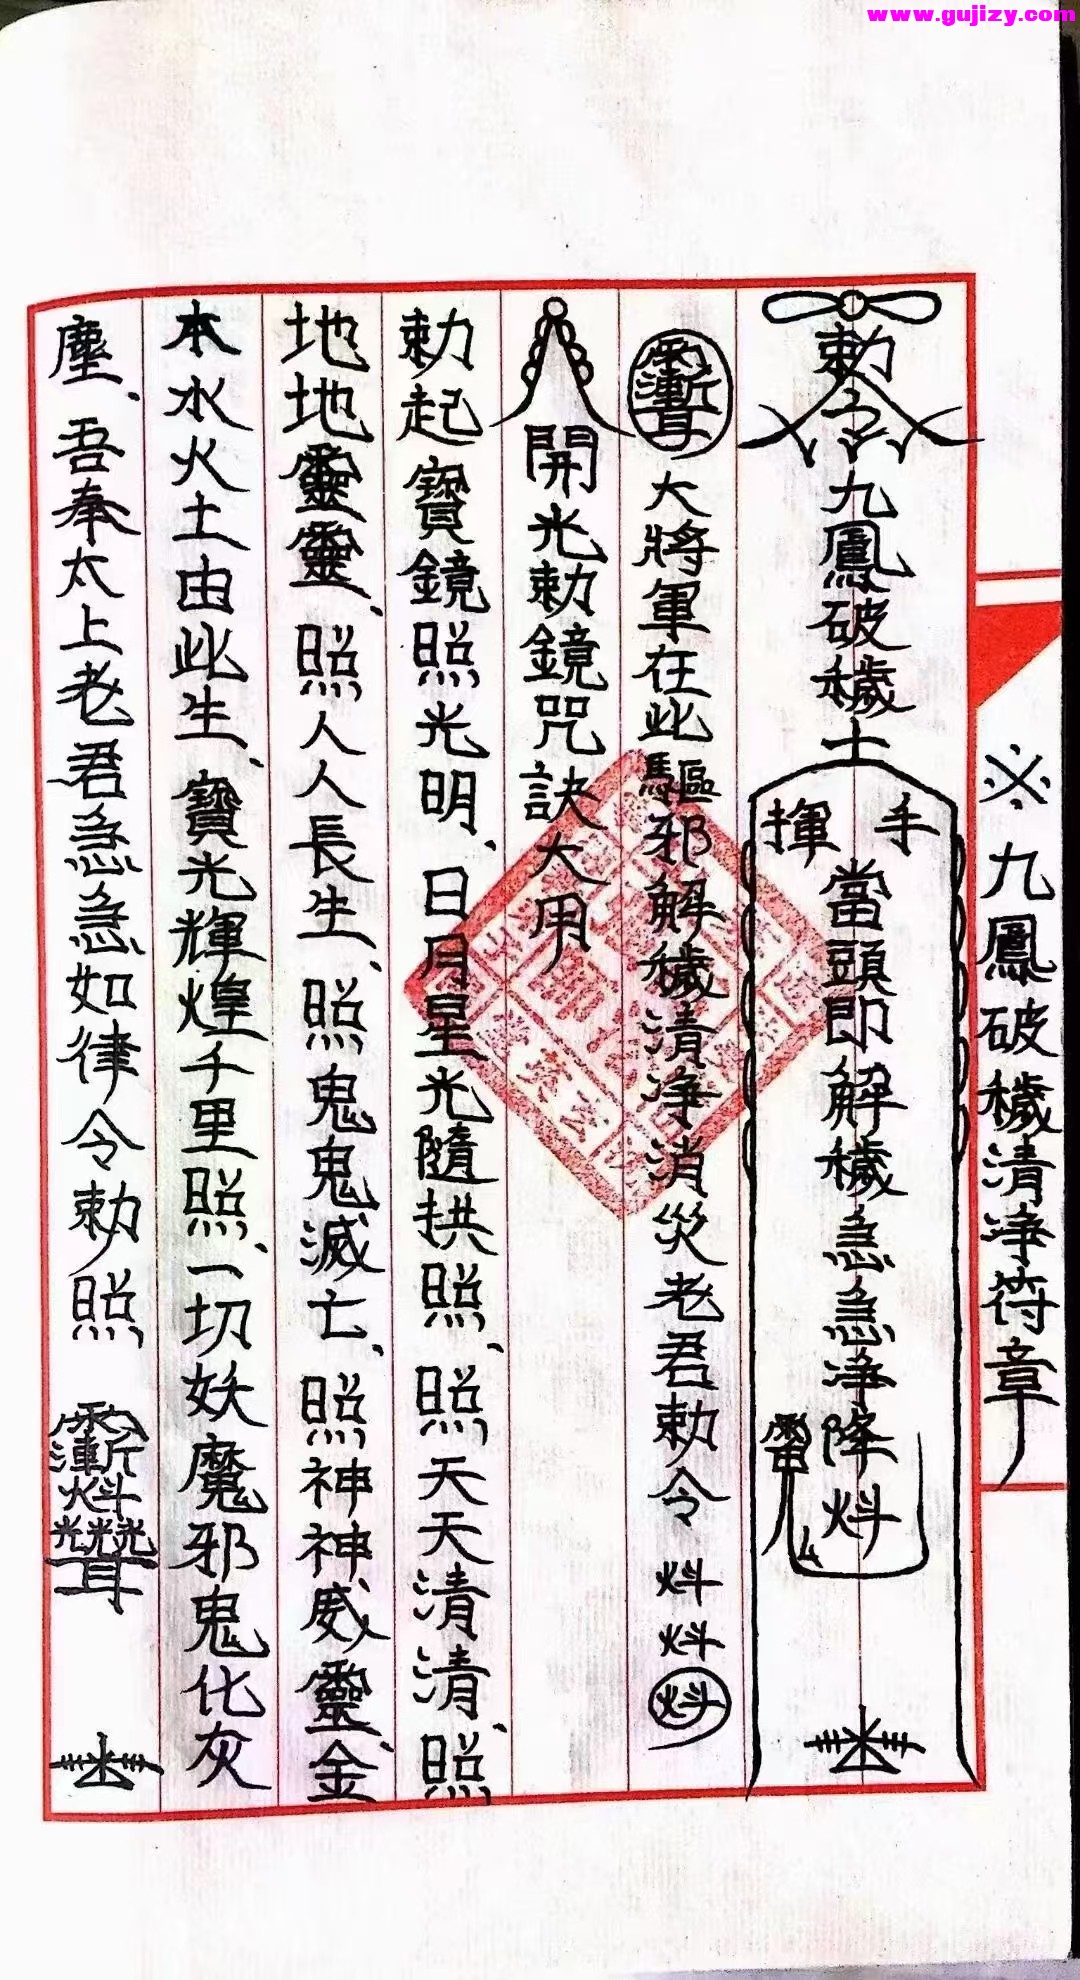 www.gujizy.com
※九鳳破穢清淨符章
勅令九鳳破穢士
手揮
當頭即解穢急急淨降炓
大將軍在此驅邪解穢清淨消災老君勅令炓炓炓
開光勅鏡咒訣大用
勅起寶鏡照光明、日月星光隨拱照、照天天清清、照
地地靈靈、照人人長生、照鬼鬼滅亡、照神神威靈、金
本水火土由此生、寶光輝煌千里照、一切妖魔邪鬼化灰
塵、吾奉太上老君急急如律令勅照